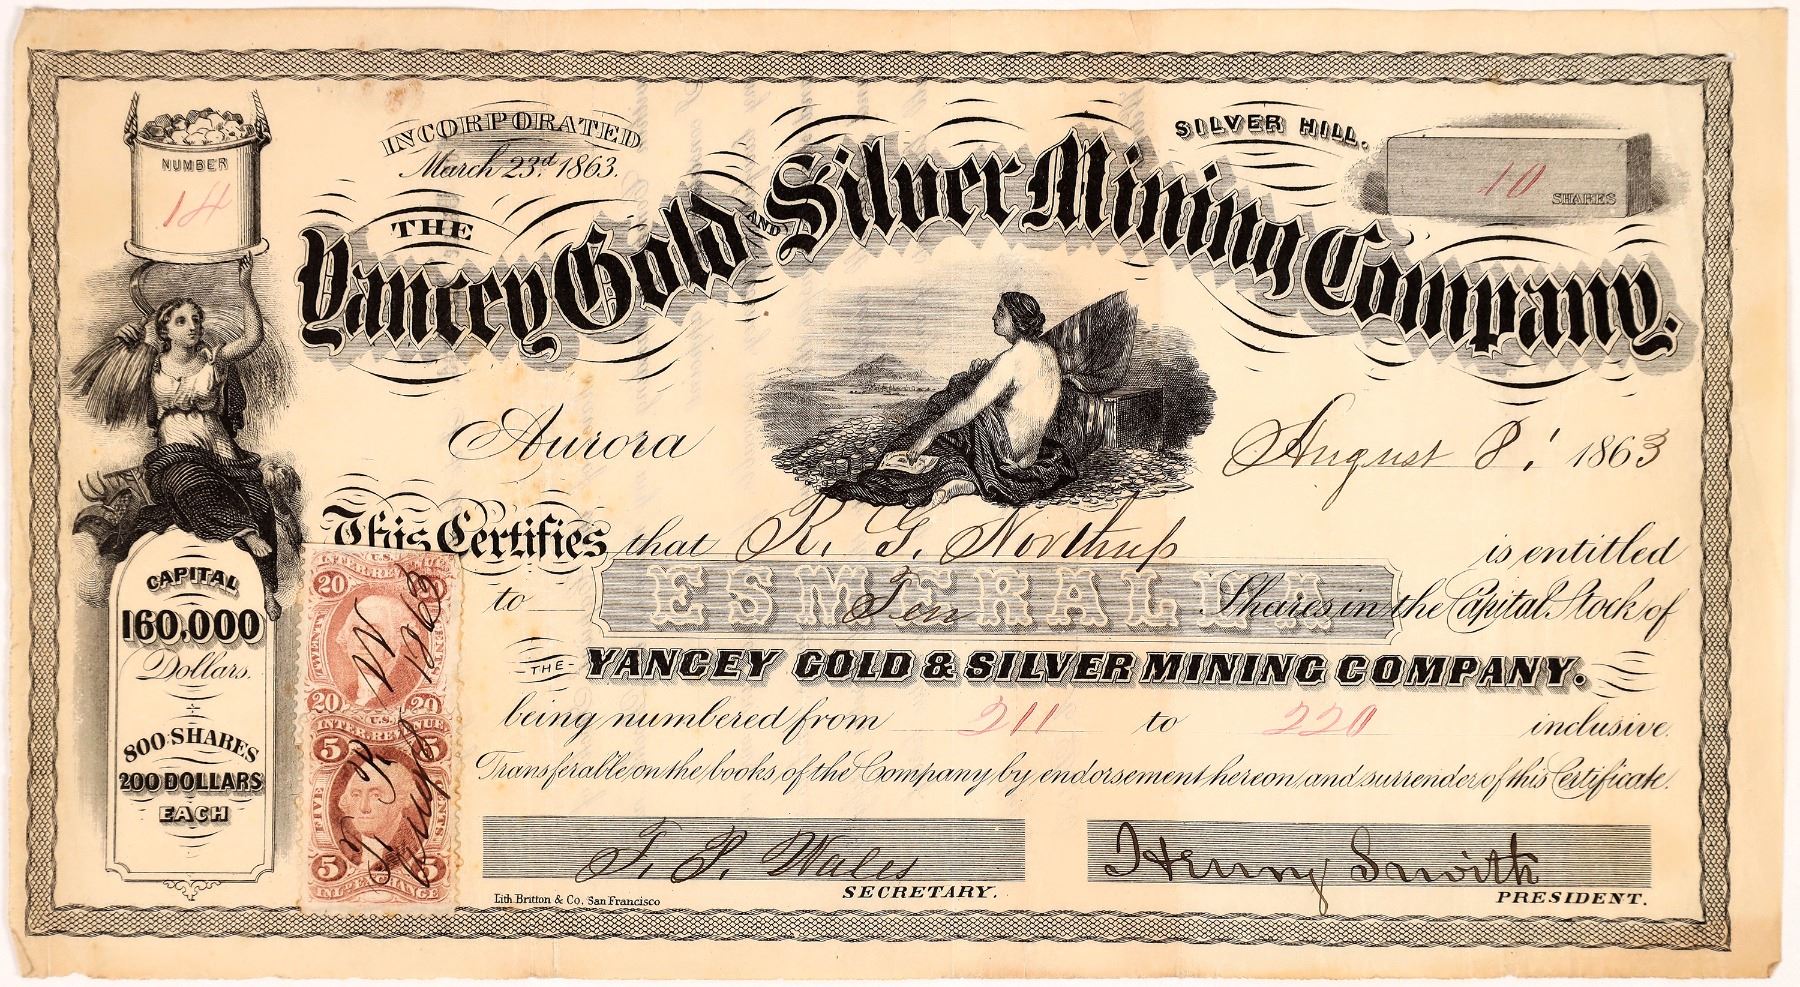 NUMBER
14
INCORPORATED
March 23d. 1863.
SILVER HILL.
10
SHARES
THE
Yancey Gold AND Silver Mining Company.
Aurora
August 8, 1863
This Certifies that R. G. Northrup is entitled
to Ten Shares in the Capital Stock of
ESMERALDA
THE YANCEY GOLD & SILVER MINING COMPANY.
being numbered from 211 to 220 inclusive.
Transferable on the books of the Company by endorsement hereon and surrender of this Certificate.
CAPITAL
160,000
Dollars.
800 SHARES
200 DOLLARS
EACH
INTER. REVENUE
U.S.
20
TWENTY
CENTS
20 20
INTER. REVENUE
U.S.
5 5
FIVE
CENTS
5 5
INL'D EXCHANGE
1863
F. P. Wales
SECRETARY.
Henry
PRESIDENT.
Lith Britton & Co. San Francisco